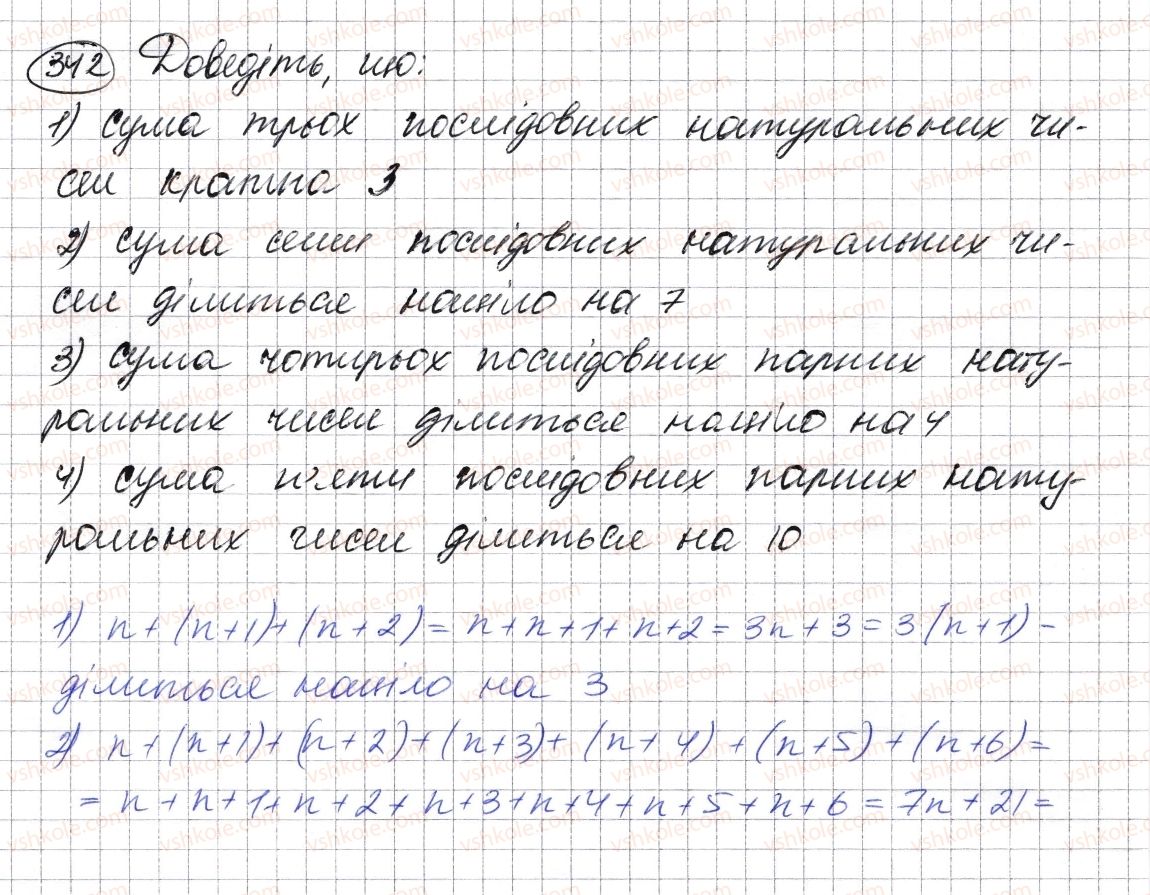 342 Доведіть, що:
1) сума трьох послідовних натуральних чи-
сел кратна 3
2) сума семи послідовних натуральних чи-
сел ділиться націло на 7
3) сума чотирьох послідовних парних нату-
ральних чисел ділиться націло на 4
4) сума п'яти послідовних парних нату-
ральних чисел ділиться на 10
1) n + (n+1) + (n+2) = n+n+1+n+2 = 3n+3 = 3(n+1) -
ділиться націло на 3
2) n+(n+1)+(n+2)+(n+3)+(n+4)+(n+5)+(n+6)=
= n+n+1+n+2+n+3+n+4+n+5+n+6 = 7n+21=